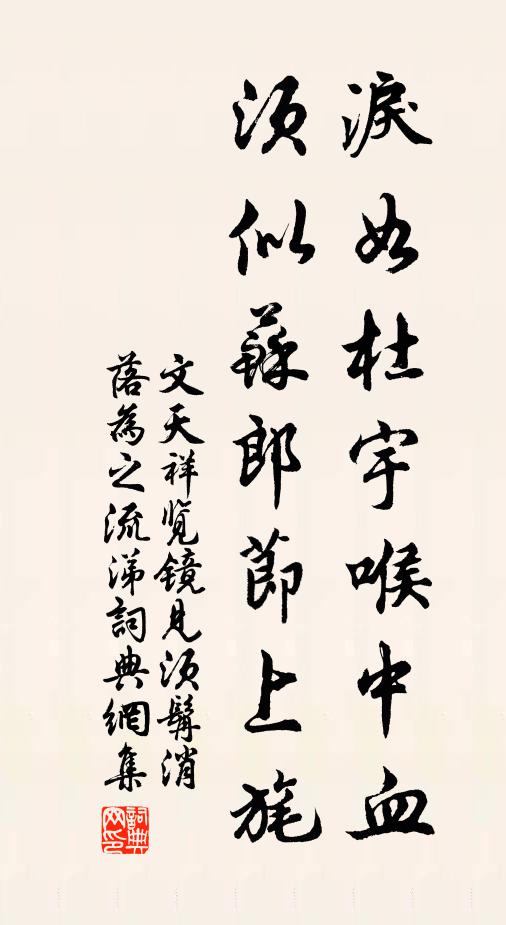 淚如杜宇喉中血
須似蘇郎節上旄
文天祥覧鏡見須髯消
落為之流涕詞典網集
詞典
网印